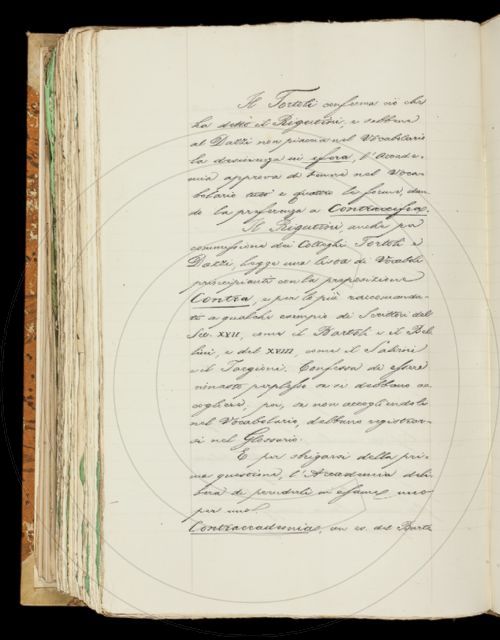 Il Tortoli conferma ciò che
ha detto il Rigutini, e sebbene
al Dazzi non piaccia nel Vocabolario
la desinenza in ifera, l'Accade-
mia approva di tenere nel Voca-
bolario tutte e quattro le forme, dan-
do la preferenza a Contraccifra.
Il Rigutini, anche per
commissione dei Colleghi Tortoli e
Dazzi, legge una lista di Vocaboli
principianti con la preposizione
Contra, e per lo più raccomanda-
ti a qualche esempio di Scrittori del
Sec. XVII, come il Bartoli e il Bel-
lini, e del XVIII, come il Salvini
e il Targioni. Confessa di essere
rimasto perplesso se si debbano ac-
cogliere, poi, se non accogliendoli
nel Vocabolario, debbano registrar-
si nel Glossario.
E per sbrigarsi della pri-
ma questione, l'Accademia deli-
bera di prenderli in esame uno
per uno.
Contraccademia, un es. del Bart.